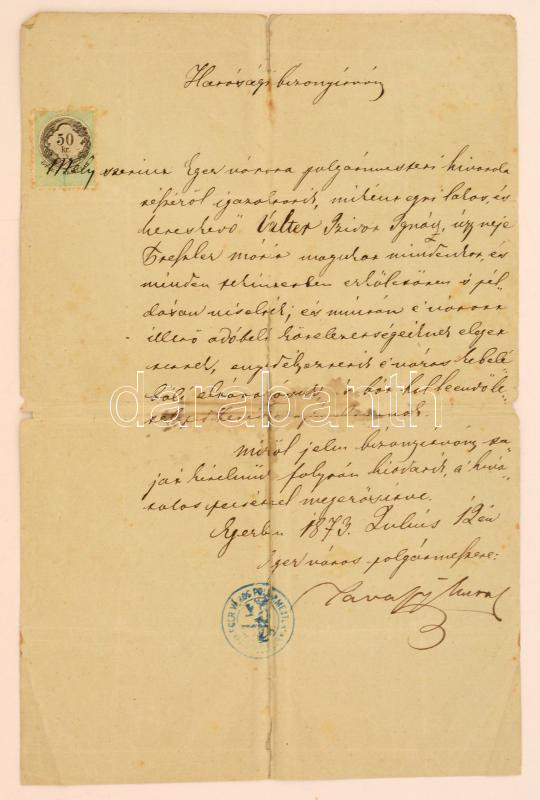 Hatósági bizonyítvány
50
kr.
Mely szerint Eger városa polgármesteri hivatala
részéről igazoltatik, miként egri lakos, és
kereskedő Valter Izidor Ignácz, úgy neje
Treszler Mária magukat mindenkor, és
minden tekintetben erkölcsösen s pél
dásan viselték; és miután e városra
illető adóbeli kötelezettségeiknek eleget
tettek, engedélyeztetik e város kebelé
ből elköltözésük, s bár hol leendő le
darabanth
miről jelen bizonyítvány sa
ját kérelmük folytán kiadatik, a hiva
talos pecséttel megerősítve.
Egerben 1873. Julius 12én
Eger város polgármestere:
Tavassy Antal
EGER VÁROS POLGÁRMESTERE